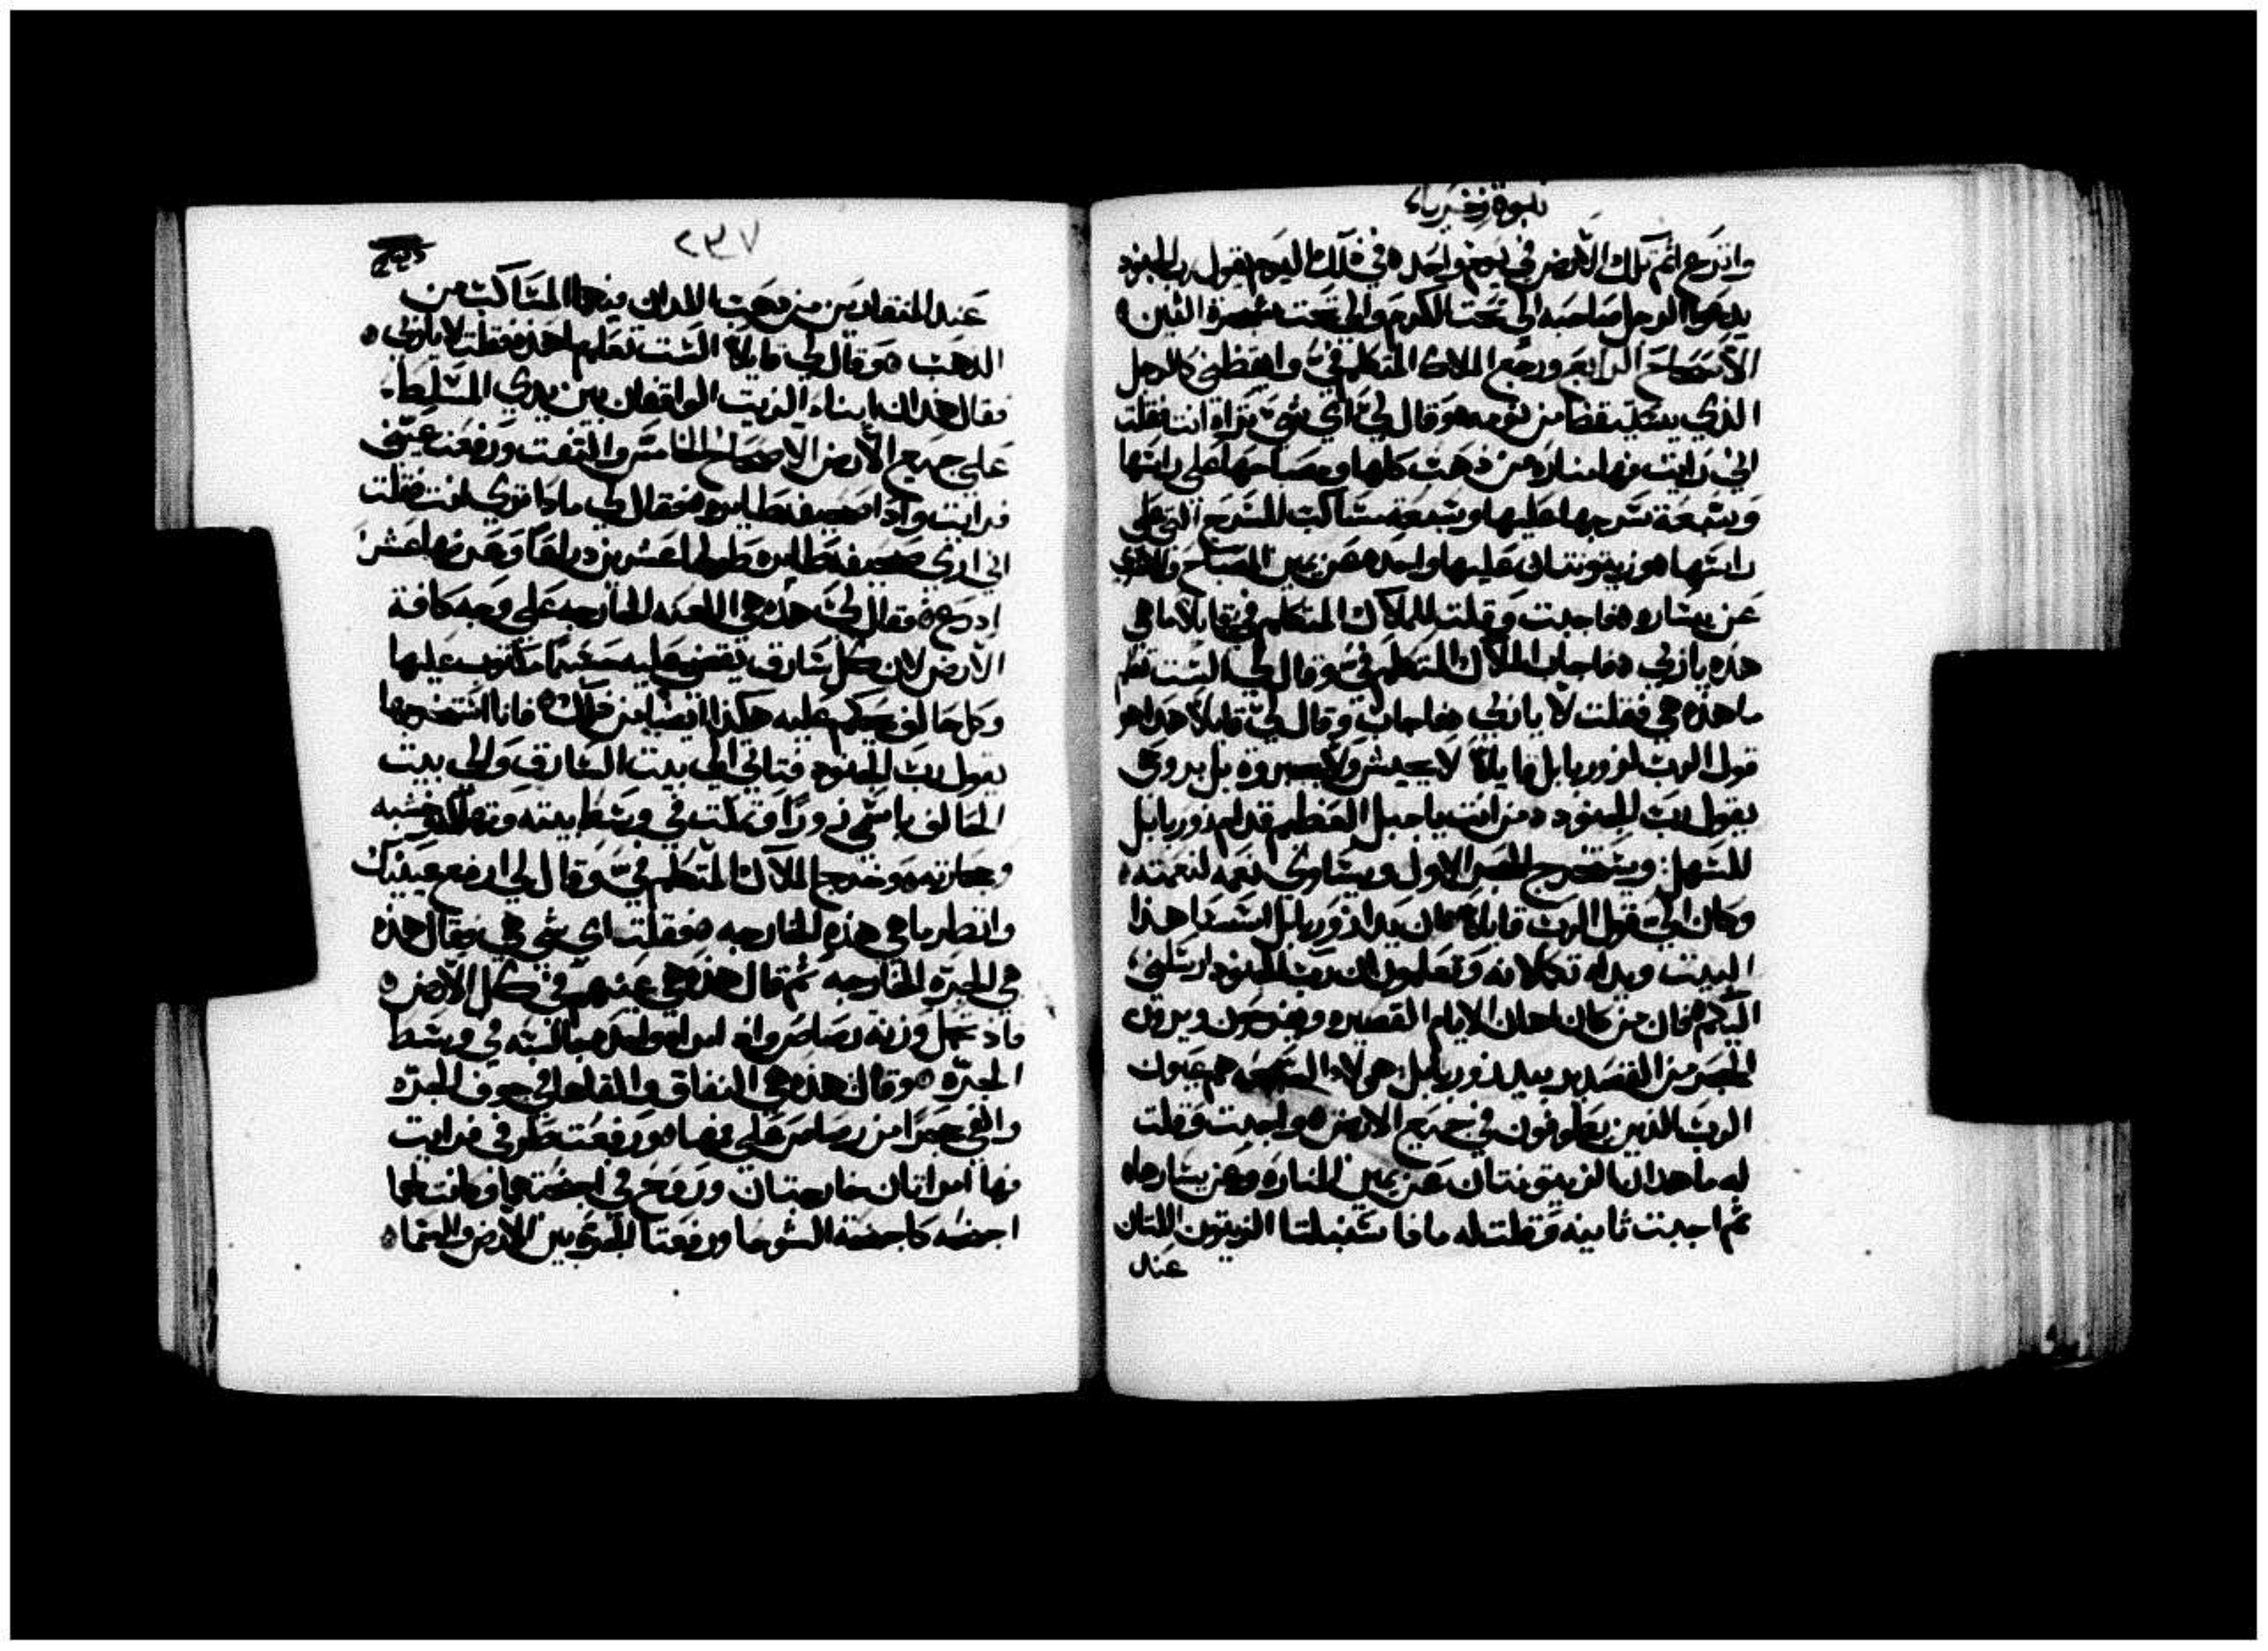 نبوة زخرياء
وانزع اثم تلك الارض في يوم واحده في ذلك اليوم يقول رب الجنود
يدعوا الرجل صاحبه الي تحت الكرم والي تحت شجرة التين ه
الاصحاح الرابع ورجع الملاك المتكلم فيّ وايقظني كالرجل
الذي يستيقظ من نومه ه وقال لي اي شي تراه انت فقلت
اني رايت فها مناره من ذهب كلها ومصباحها علي راسها
وسبعة سرجها عليها وسبعة مساكب للسرج التي علي
راسها ه وزيتونتان عليها واحده عن يمين المصباح والاخري
عن يساره ه فاجبت وقلت للملاك المتكلم فيّ قايلا ما هي
هذه يا ربي ه فاجاب الملاك المتكلم فيّ وقال لي الست تعلم
ما هذه هي فقلت لا يا ربي ه فاجاب وقال لي قايلا هذا هو
قول الرب لزوربابل قايلا لا بجيش ولا بجبروة بل بروحي
يقول رب الجنود ه من انت يا جبل العظيم قدام زوربابل
للسهل ويستخرج الحجر الاول ويساوي نعمه لنعمته ه
وكان اليّ قول الرب قايلا ه ان يدا زوربابل اسسا هذا
البيت ويداه تكملانه وتعلمون ان رب الجنود ارسلني
اليكم ه فان من كان اهان الايام القصيره ويفرحون ويرون
الحجر من القصدير بيد زوربابل هولاء السبعه هم عيون
الرب الذين يطوفون في جميع الارض ه واجبت وقلت
له ما هذان الزيتونتان عن يمين المناره وعن يسارها ه
ثم اجبت ثانيه وقلت له ماذا سنبلتا الزيتون اللتان
عند
٢٣٧
عند المنقادين من ذهب اللذان فيهما المساكب من
الذهب ه وقال لي قايلا الست تعلم ما هذه فقلت لا يا ربي ه
فقال هذان ابناء الزيت الواقفان بين يدي المسلط
علي جميع الارض الاصحاح الخامس والتفت ورفعت عينيّ
فرايت واذا صحيفه طايره ه فقال لي ماذا تري انت فقلت
اني اري صحيفه طايره طولها عشرين دراعا وعرضها عشر
ادرع ه فقال لي هذه هي اللعنه الخارجه علي وجه كافة
الارض لان كل سارق يقضي عليه مكتوب عليها
وكل حالف يحكم عليه هكذا ايضا من ذلك ه فانا استخرجها
يقول رب الجنود فتاتي الي بيت السارق والي بيت
الحالف باسمي زورا وتمكث في وسط بيته وتهلكه وخشبه
وحجارته ه وخرج الملاك المتكلم فيّ وقال لي ارفع عينيك
وانظر ما هي هذه الخارجه ه فقلت اي شي هي فقال هذه
هي الجره الخارجه ثم قال هذه هي عينهم في كل الارض ه
فاذ بحمل وزنة رصاص واذ امراه واحده جالسه في وسط
الجره ه وقال هذه هي النفاق والقاها في جوف الجره
والقي حجرا من رصاص علي فمها ه ورفعت طرفي فرايت
فها امراتان خارجتان وروح في اجنحتهما وكانت لهما
اجنحه كاجنحة الشوحا ورفعتا الجره بين الارض والسما ه